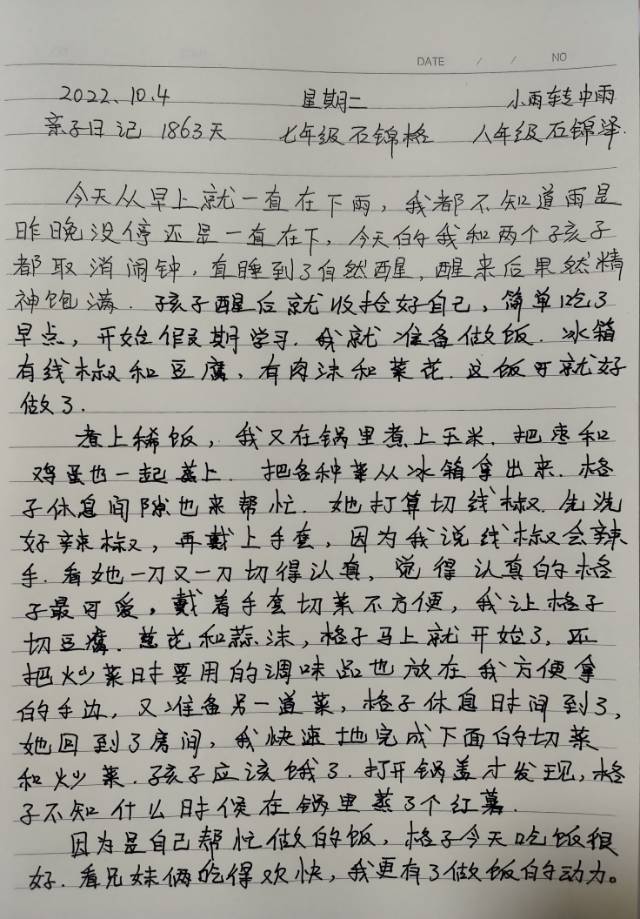 DATE / / NO
2022.10.4 星期二 小雨转中雨
亲子日记 1863天 七年级石锦格 八年级石锦泽
今天从早上就一直在下雨，我都不知道雨是
昨晚没停还是一直在下，今天的我和两个孩子
都取消闹钟，直睡到了自然醒，醒来后果然精
神饱满．孩子醒后就收拾好自己，简单吃了
早点，开始假期学习．我就准备做饭．冰箱
有线椒和豆腐，有肉沫和菜花．这饭可就好
做了．
煮上稀饭，我又在锅里煮上玉米．把枣和
鸡蛋也一起蒸上．把各种菜从冰箱拿出来．格
子休息间隙也来帮忙．她打算切线椒．先洗
好辣椒，再戴上手套，因为我说线椒会辣
手．看她一刀又一刀切得认真，觉得认真的格
子最可爱，戴着手套切菜不方便，我让格子
切豆腐．葱花和蒜沫，格子马上就开始了，还
把炒菜时要用的调味品也放在我方便拿
的手边．又准备另一道菜，格子休息时间到了，
她回到了房间，我快速地完成下面的切菜
和炒菜．孩子应该饿了．打开锅盖才发现，格
子不知什么时候在锅里蒸了个红薯．
因为是自己帮忙做的饭，格子今天吃饭很
好．看兄妹俩吃得欢快，我更有了做饭的动力。